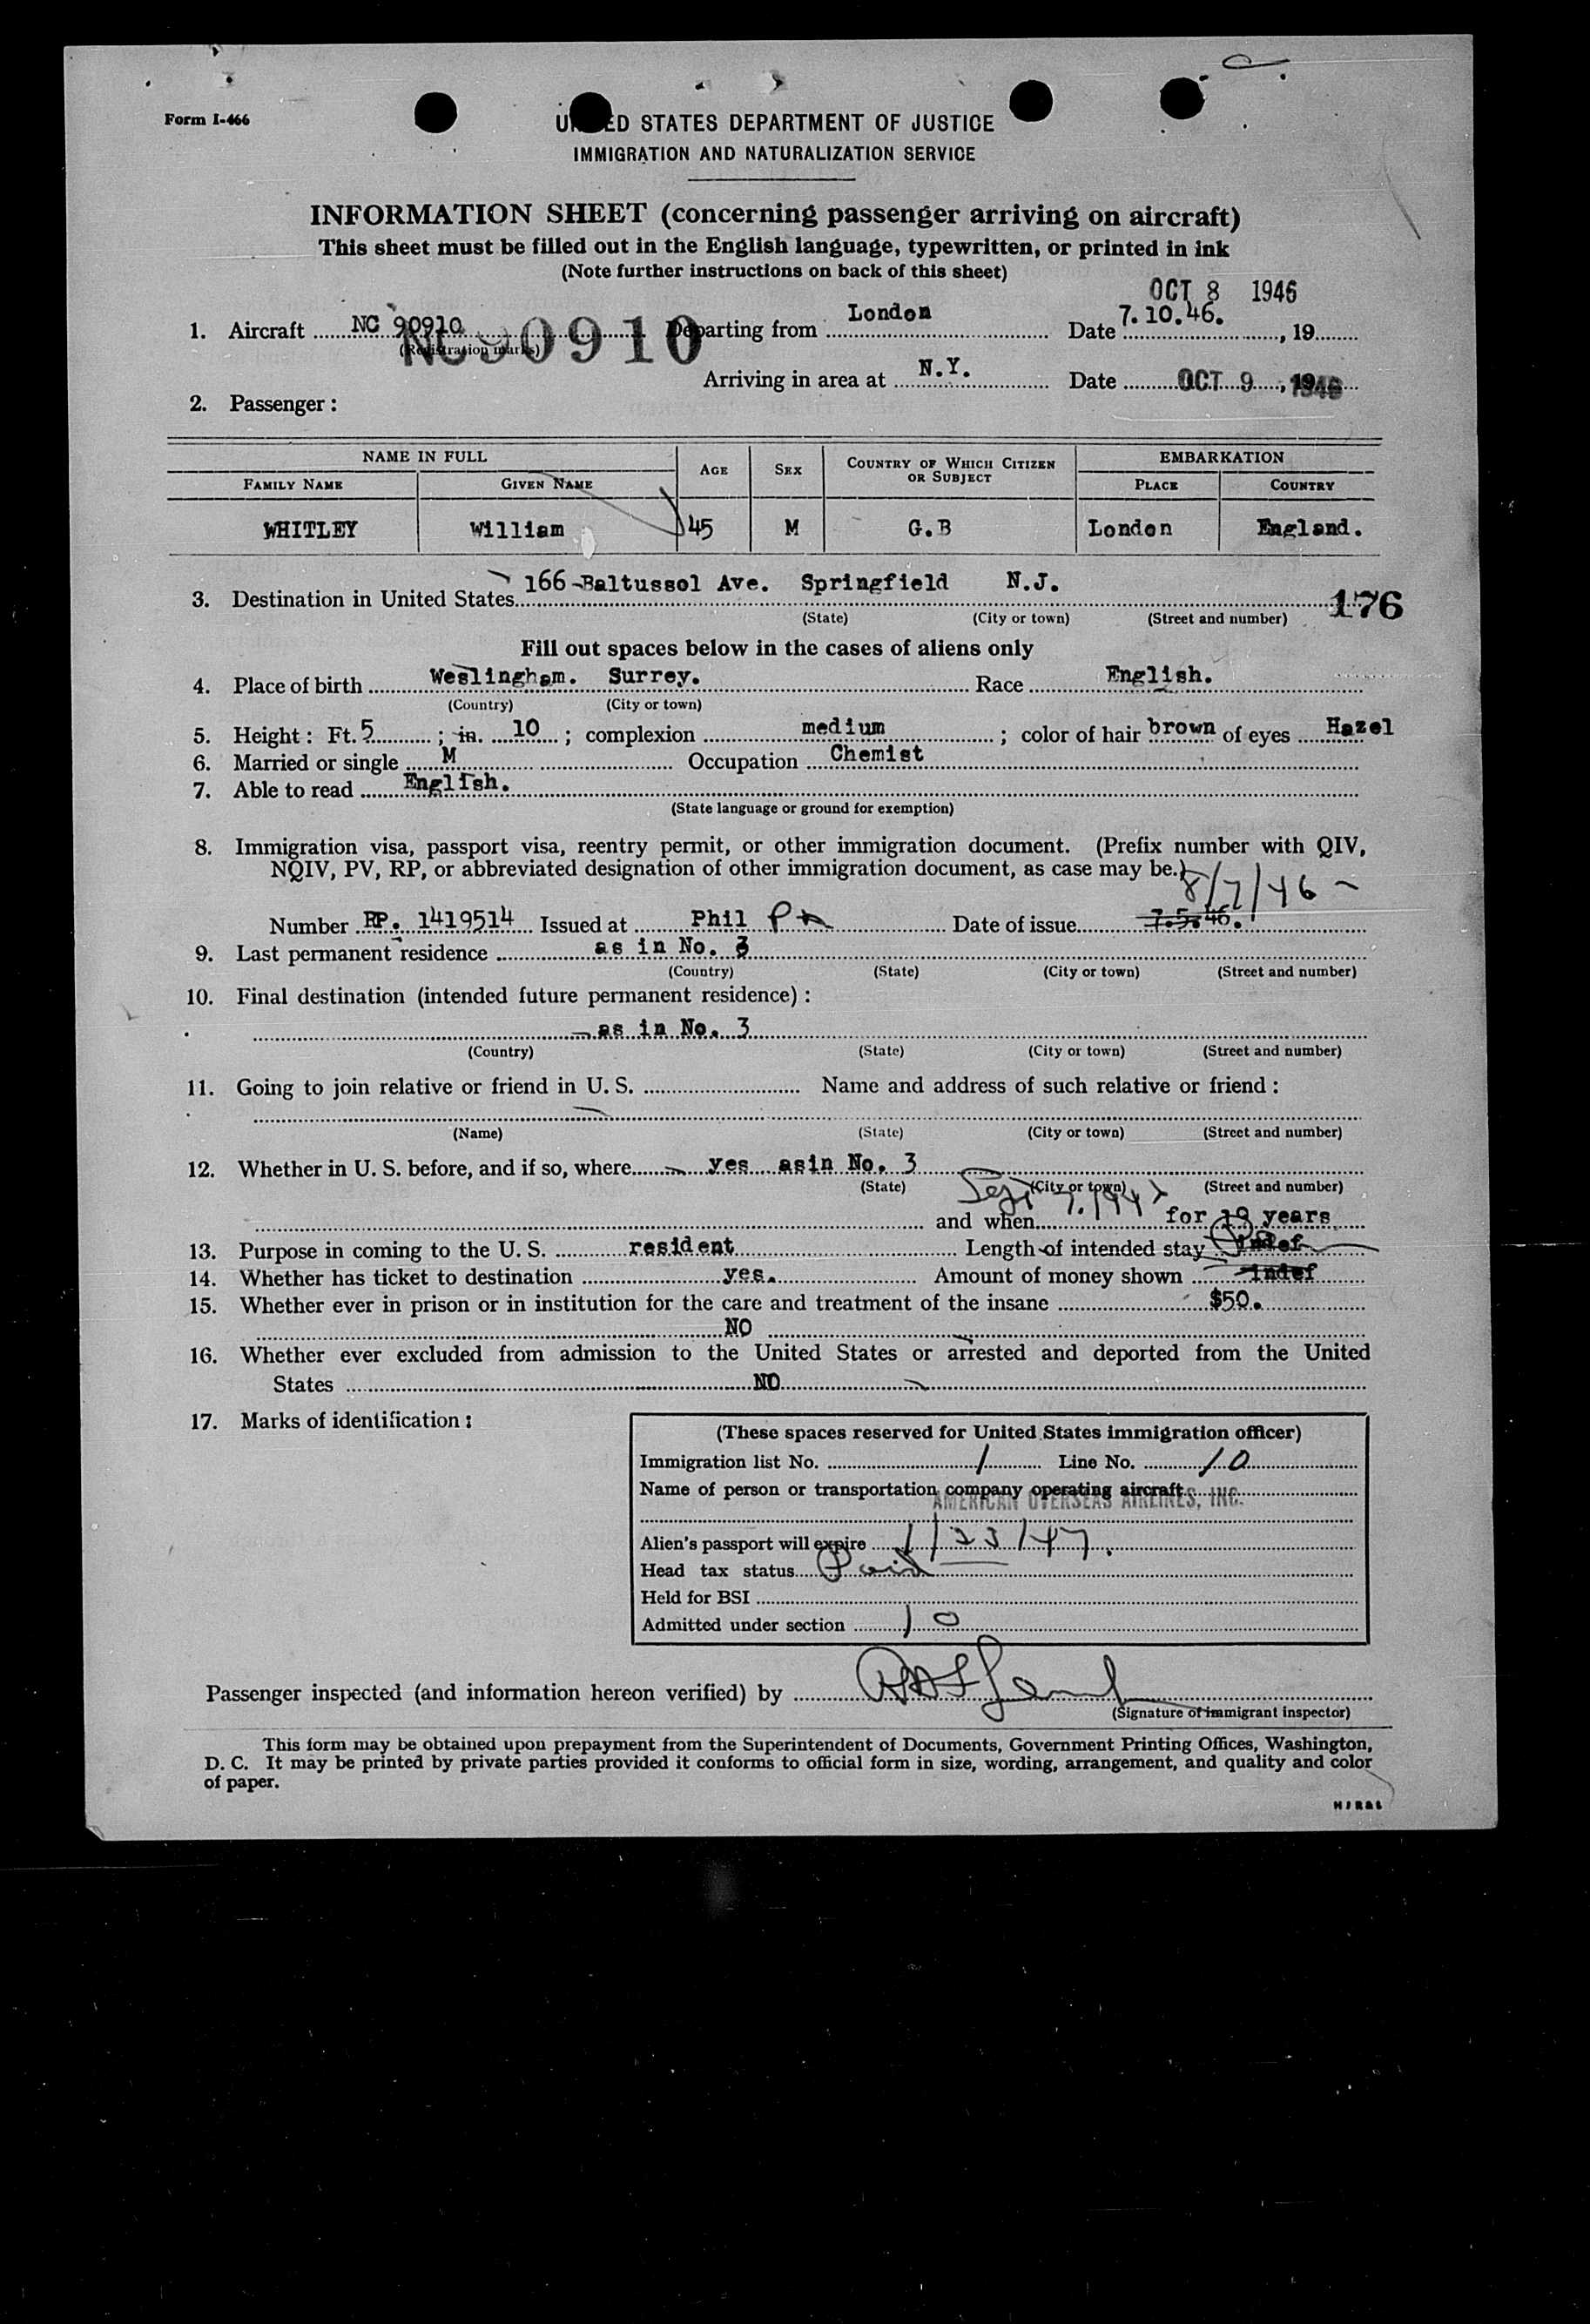 Form I-466
UNITED STATES DEPARTMENT OF JUSTICE
IMMIGRATION AND NATURALIZATION SERVICE
INFORMATION SHEET (concerning passenger arriving on aircraft)
This sheet must be filled out in the English language, typewritten, or printed in ink
(Note further instructions on back of this sheet)
OCT 8 1946
1. Aircraft NC 90910 Departing from London Date 7.10.46. , 19
(Registration marks)
NC90910
Arriving in area at N.Y. Date OCT 9 , 1946
2. Passenger :
NAME IN FULL AGE SEX COUNTRY OF WHICH CITIZEN OR SUBJECT EMBARKATION
FAMILY NAME GIVEN NAME PLACE COUNTRY
WHITLEY William 45 M G.B London England.
3. Destination in United States 166 Baltussol Ave. Springfield N.J.
(State) (City or town) (Street and number) 176
Fill out spaces below in the cases of aliens only
4. Place of birth Weslingham. Surrey. Race English.
(Country) (City or town)
5. Height : Ft. 5 ; in. 10 ; complexion medium ; color of hair brown of eyes Hazel
6. Married or single M Occupation Chemist
7. Able to read English.
(State language or ground for exemption)
8. Immigration visa, passport visa, reentry permit, or other immigration document. (Prefix number with QIV,
NQIV, PV, RP, or abbreviated designation of other immigration document, as case may be.)
8/7/46
Number RP. 1419514 Issued at Phil Pa Date of issue 7.5.46.
9. Last permanent residence as in No. 3
(Country) (State) (City or town) (Street and number)
10. Final destination (intended future permanent residence) :
as in No. 3
(Country) (State) (City or town) (Street and number)
11. Going to join relative or friend in U. S. Name and address of such relative or friend :
(Name) (State) (City or town) (Street and number)
12. Whether in U. S. before, and if so, where yes asin No. 3
(State) (City or town) (Street and number)
and when for 19 years
13. Purpose in coming to the U. S. resident Length of intended stay indef
14. Whether has ticket to destination yes. Amount of money shown indef
15. Whether ever in prison or in institution for the care and treatment of the insane $50.
NO
16. Whether ever excluded from admission to the United States or arrested and deported from the United
States NO
17. Marks of identification :
(These spaces reserved for United States immigration officer)
Immigration list No. 1 Line No. 10
Name of person or transportation company operating aircraft
AMERICAN OVERSEAS AIRLINES, INC.
Alien's passport will expire 1/23/47.
Head tax status Paid
Held for BSI
Admitted under section 10
Passenger inspected (and information hereon verified) by
(Signature of immigrant inspector)
This form may be obtained upon prepayment from the Superintendent of Documents, Government Printing Offices, Washington,
D. C. It may be printed by private parties provided it conforms to official form in size, wording, arrangement, and quality and color
of paper.